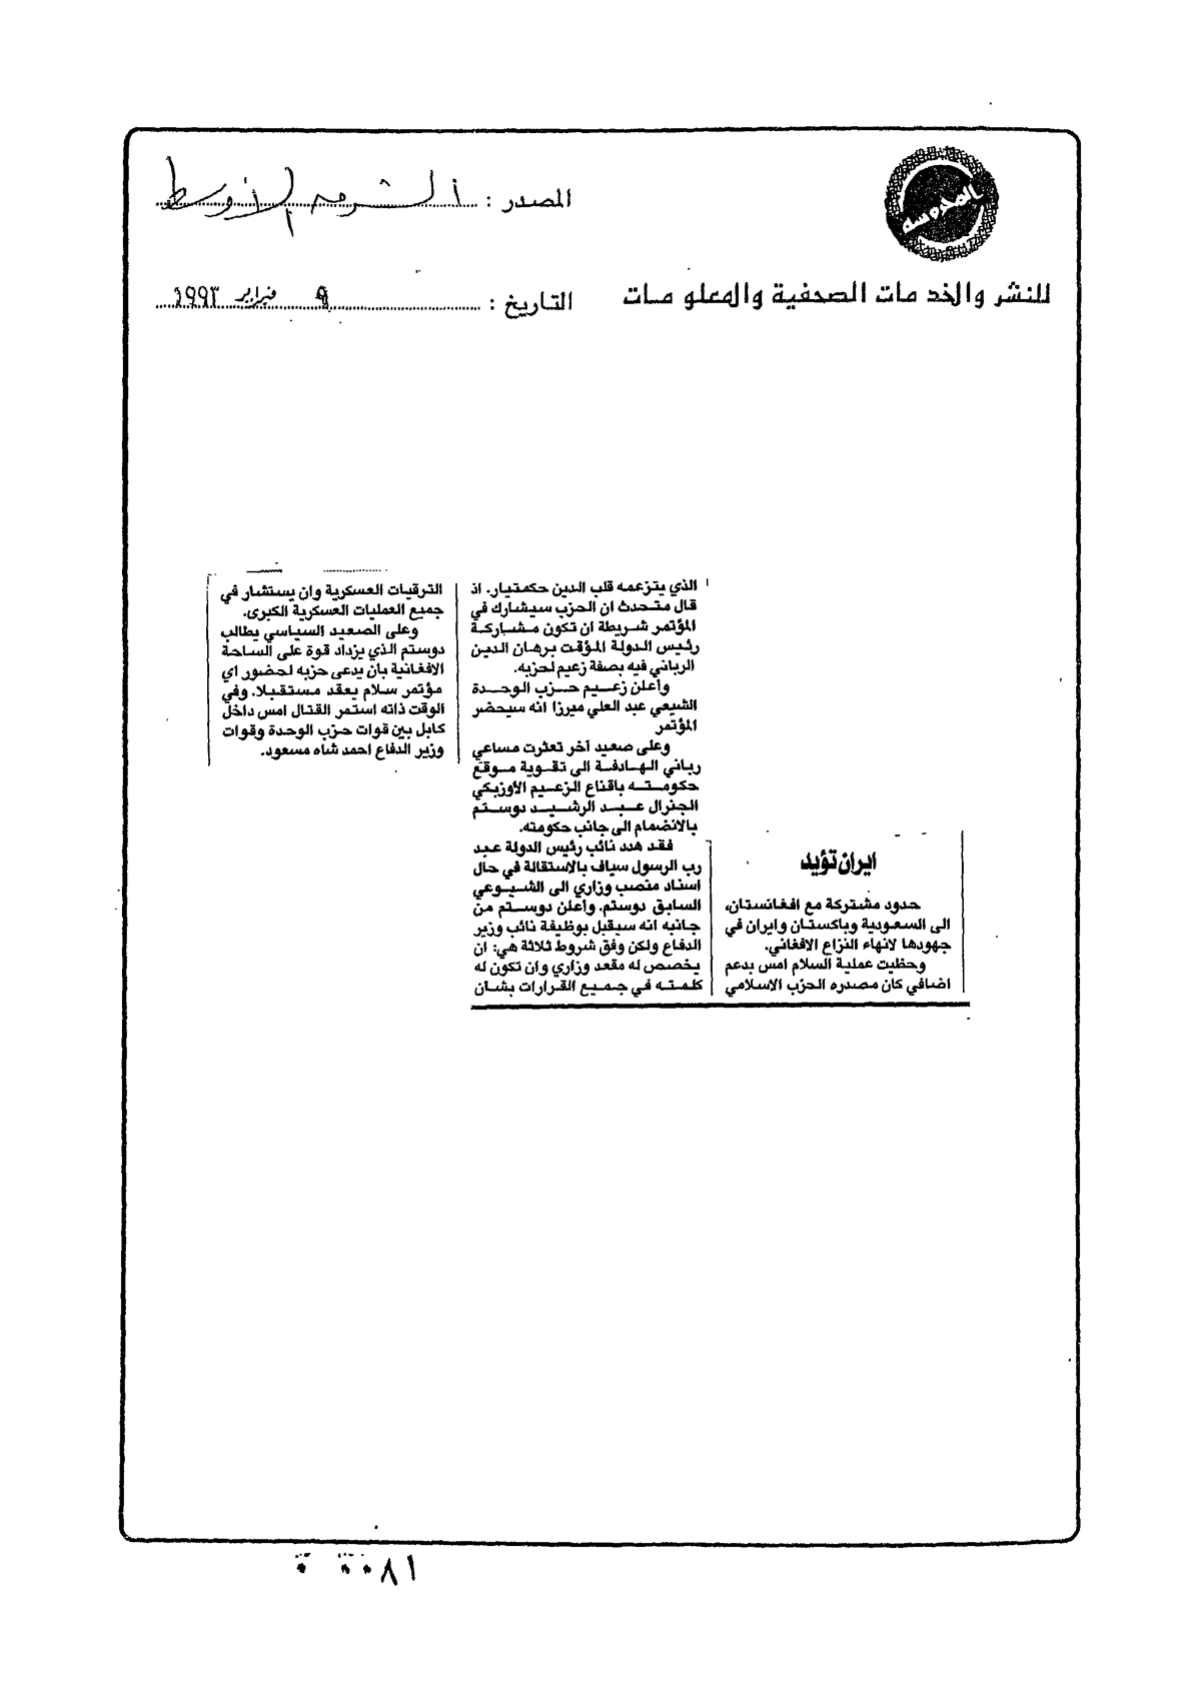 المصدر : الشرق الاوسط
المحروسة
للنشر والخدمات الصحفية والمعلومات
التاريخ : ٩ فبراير ١٩٩٣
ايران تؤيد
حدود مشتركة مع افغانستان،
الى السعودية وباكستان وايران في
جهودها لانهاء النزاع الافغاني.
وحظيت عملية السلام امس بدعم
اضافي كان مصدره الحزب الاسلامي
الذي يتزعمه قلب الدين حكمتيار. اذ
قال متحدث ان الحزب سيشارك في
المؤتمر شريطة ان تكون مشاركة
رئيس الدولة المؤقت برهان الدين
الرباني فيه بصفة زعيم لحزبه.
وأعلن زعيم حزب الوحدة
الشيعي عبد العلي ميرزا انه سيحضر
المؤتمر
وعلى صعيد آخر تعثرت مساعي
رباني الهادفة الى تقوية موقع
حكومته باقناع الزعيم الأوزبكي
الجنرال عبد الرشيد دوستم
بالانضمام الى جانب حكومته.
فقد هدد نائب رئيس الدولة عبد
رب الرسول سياف بالاستقالة في حال
اسناد منصب وزاري الى الشيوعي
السابق دوستم. وأعلن دوستم من
جانبه انه سيقبل بوظيفة نائب وزير
الدفاع ولكن وفق شروط ثلاثة هي: ان
يخصص له مقعد وزاري وان تكون له
كلمته في جميع القرارات بشان
الترقيات العسكرية وان يستشار في
جميع العمليات العسكرية الكبرى.
وعلى الصعيد السياسي يطالب
دوستم الذي يزداد قوة على الساحة
الافغانية بان يدعى حزبه لحضور اي
مؤتمر سلام يعقد مستقبلا. وفي
الوقت ذاته استمر القتال امس داخل
كابل بين قوات حزب الوحدة وقوات
وزير الدفاع احمد شاه مسعود.